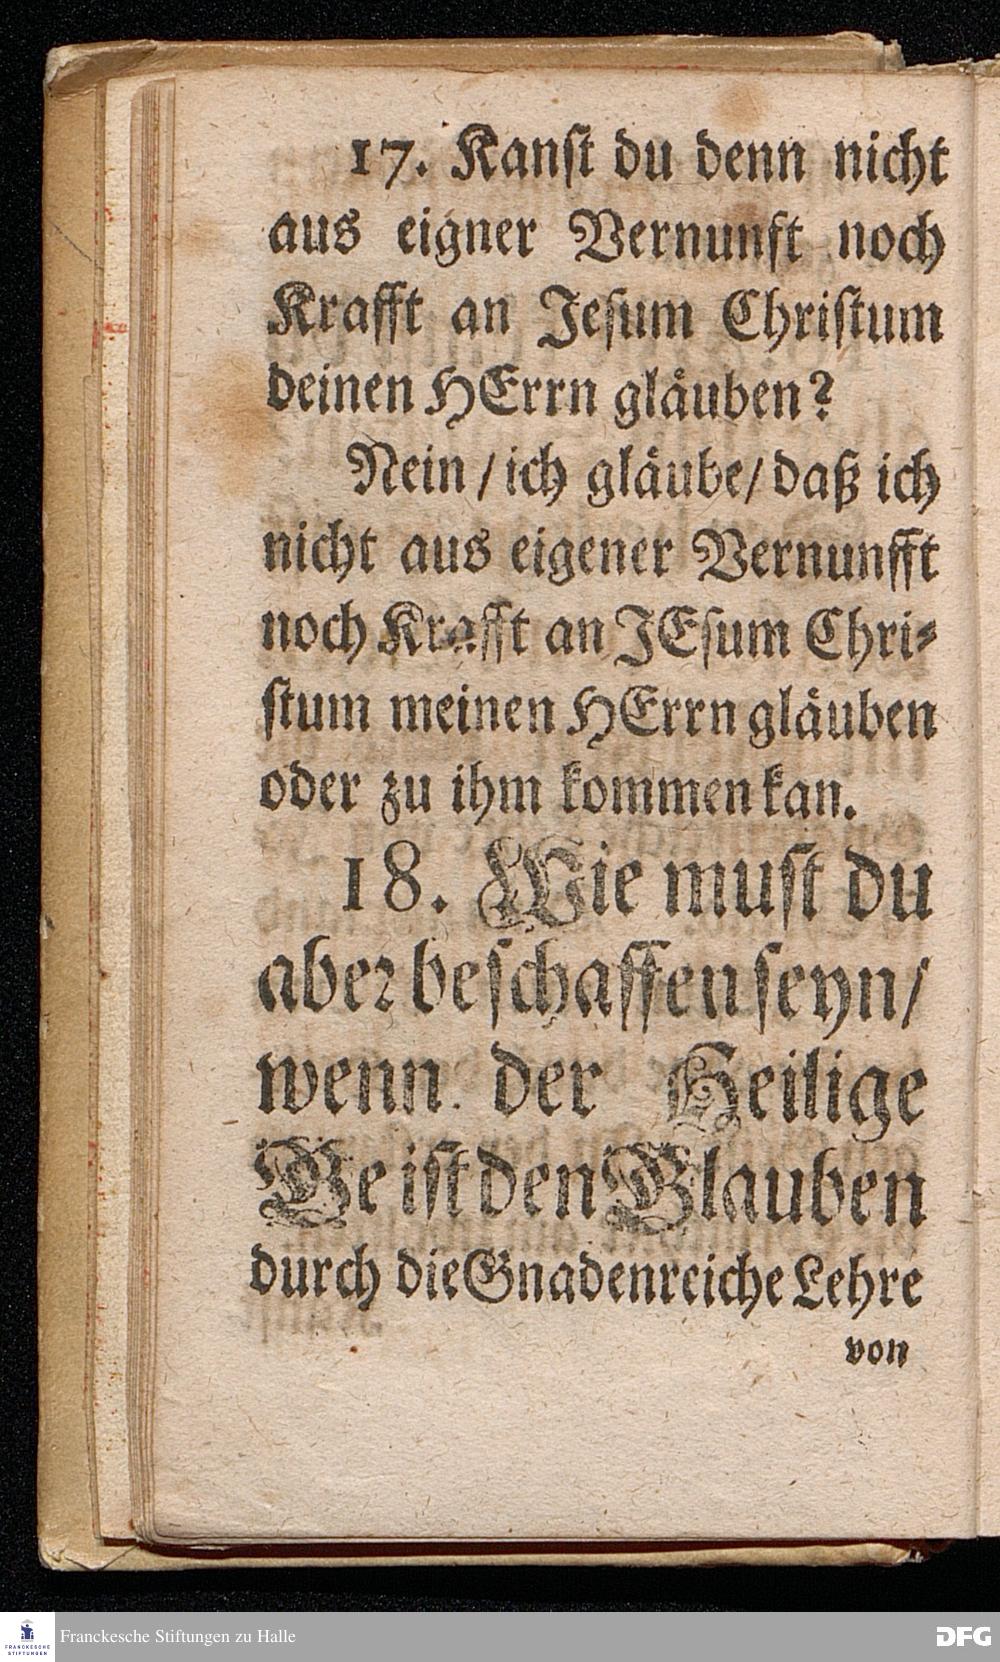 17. Kanſt du denn nicht
aus eigner Vernunft noch
Krafft an Jeſum Chriſtum
deinen HErrn gläuben?
Nein / ich gläube / daß ich
nicht aus eigener Vernunfft
noch Krafft an JEſum Chri⸗
ſtum meinen HErrn gläuben
oder zu ihm kommen kan.
18. Wie muſt du
aber beſchaffen ſeyn /
wenn der Heilige
Geiſt den Glauben
durch die Gnadenreiche Lehre
von
FRANCKESCHE
STIFTUNGEN
Franckesche Stiftungen zu Halle
DFG